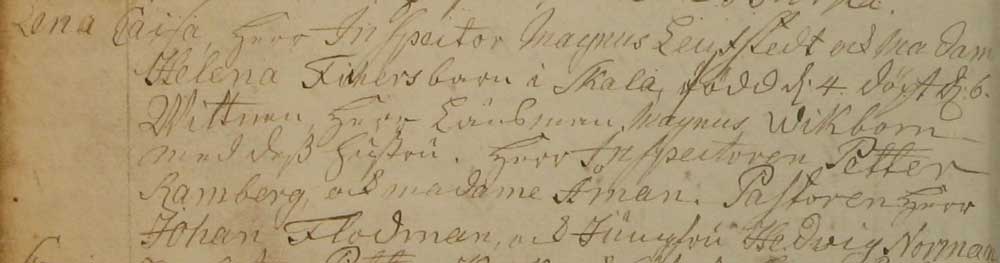 Lena Caisa, Herr Inspector Magnus Leufstedt och Madam
Helena barn i Skala, född d. 4. döpt d. 6.
Wittnen, Herr Länsman Magnus Wikbom
med dess hustru. Herr Inspectoren Petter
Ramberg, och madame Åman. Pastoren Herr
Johan Flodman, och Jungfru Hedwig Norman